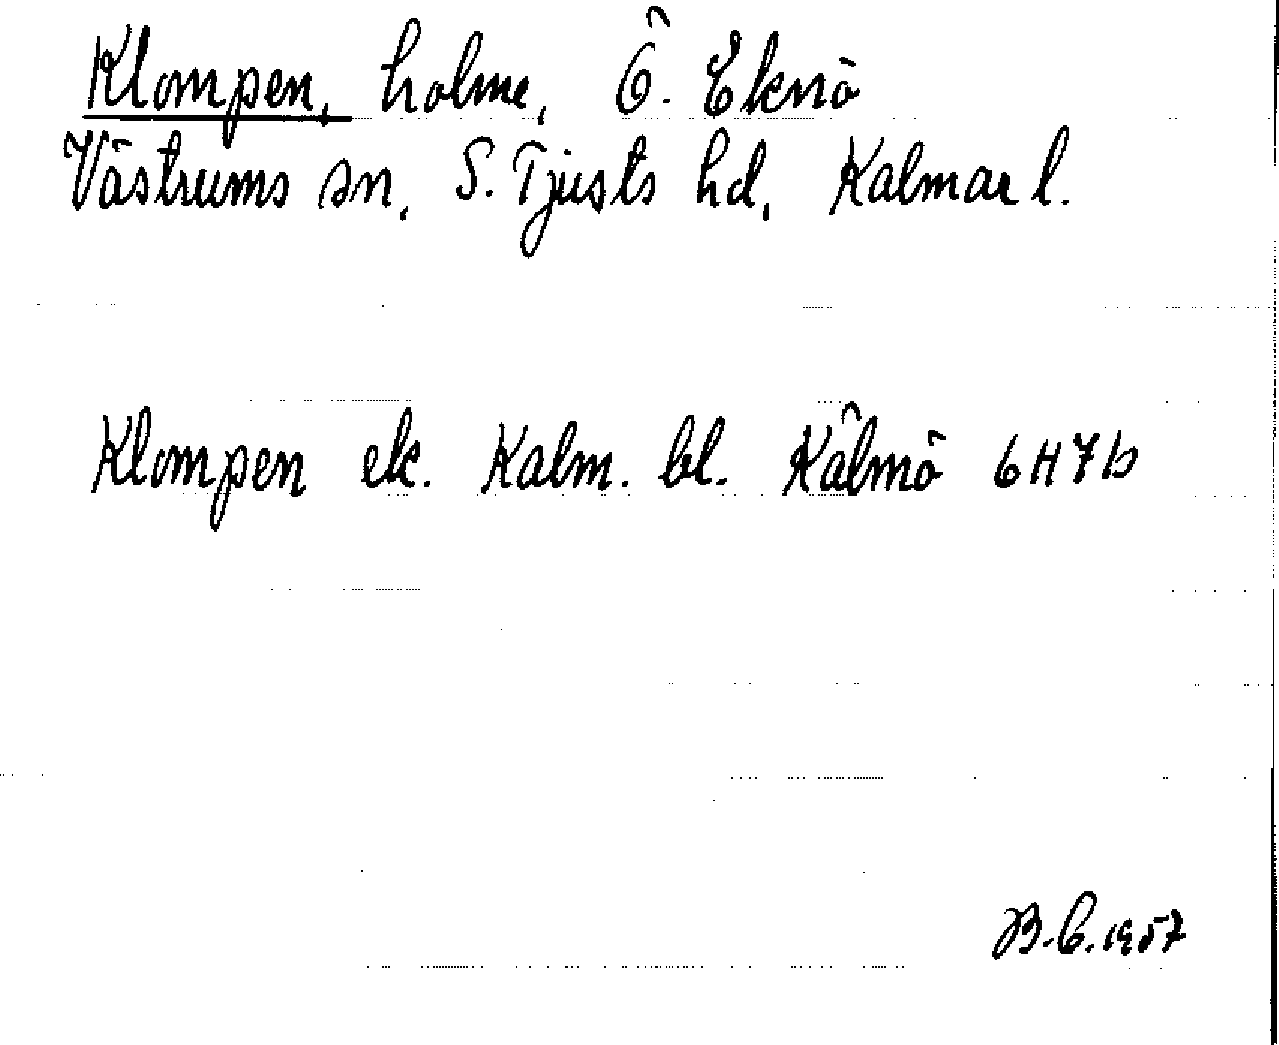 Klompen, holme, Ö. Eknö
Västrums sn, S. Tjusts hd, Kalmar l.
Klompen ek. Kalm. bl. Kålmö 6H7b
B.C. 1957